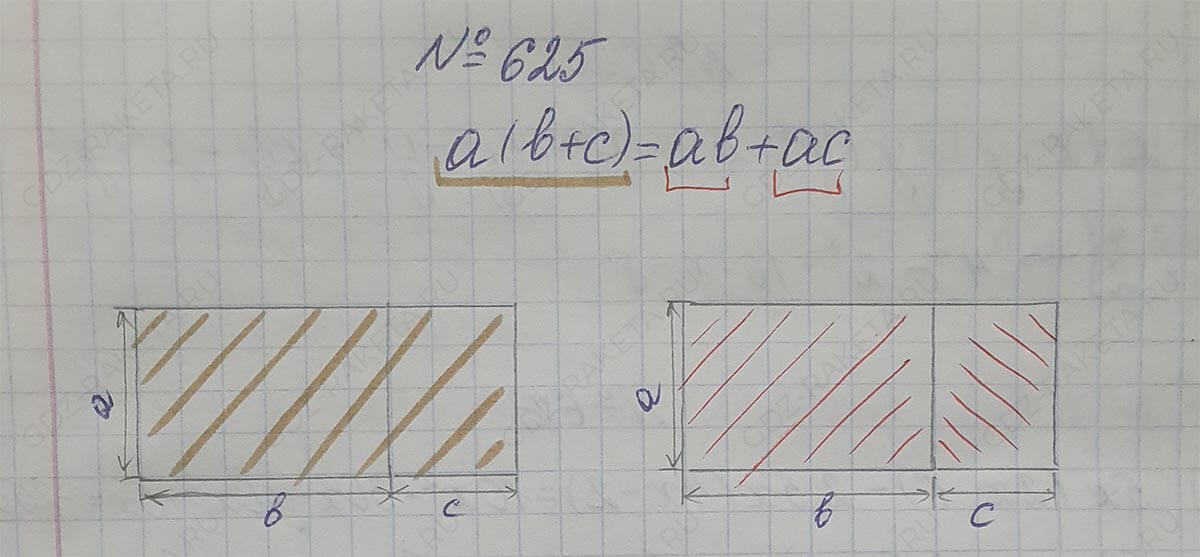 № 625
a(b+c)=ab+ac
a
b
c
a
b
c
GDZ-RAKETA.RU